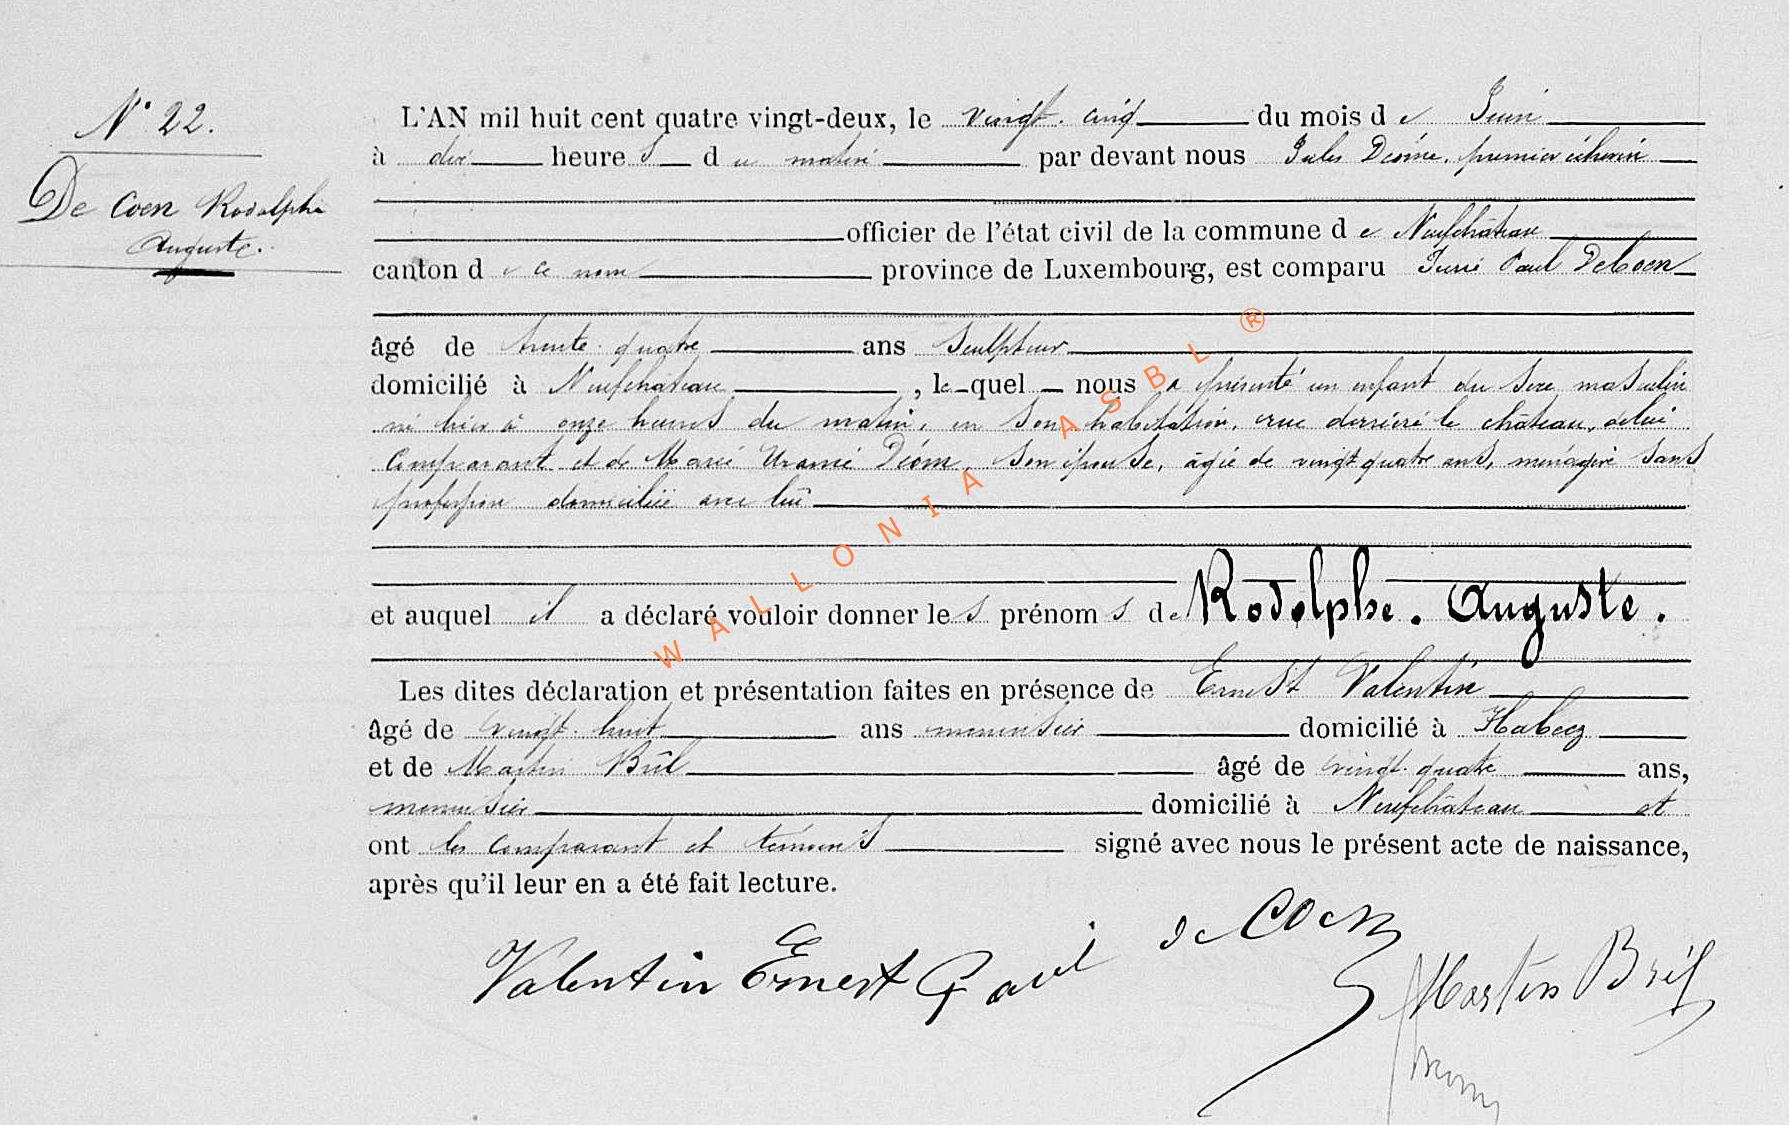 N° 22.
De Coen Rodolphe
Auguste.
L'AN mil huit cent quatre vingt-deux, le vingt-cinq du mois de Juin
à dix heures du matin par devant nous Jules Dióme, premier échevin
officier de l'état civil de la commune de Neufchâteau
canton de ce nom province de Luxembourg, est comparu Paul DeCoen
âgé de trente-quatre ans Sculpteur
domicilié à Neufchâteau, lequel nous a présenté un enfant du sexe masculin
né hier à onze heures du matin, en son habitation, rue derrière le château, de lui
Comparant et de Marie Uranie Dióm, son épouse, âgée de vingt quatre ans, ménagère sans
profession domiciliée avec lui
et auquel il a déclaré vouloir donner les prénoms de Rodolphe. Auguste.
Les dites déclaration et présentation faites en présence de Ernest Valentin
âgé de vingt-huit ans menuisier domicilié à Habay
et de Martin Bril âgé de vingt-quatre ans,
menuisier domicilié à Neufchâteau et
ont les comparant et témoins signé avec nous le présent acte de naissance,
après qu'il leur en a été fait lecture.
Valentin Ernest Paul de Coen Martin Bril
WALLONIA ASBL ®